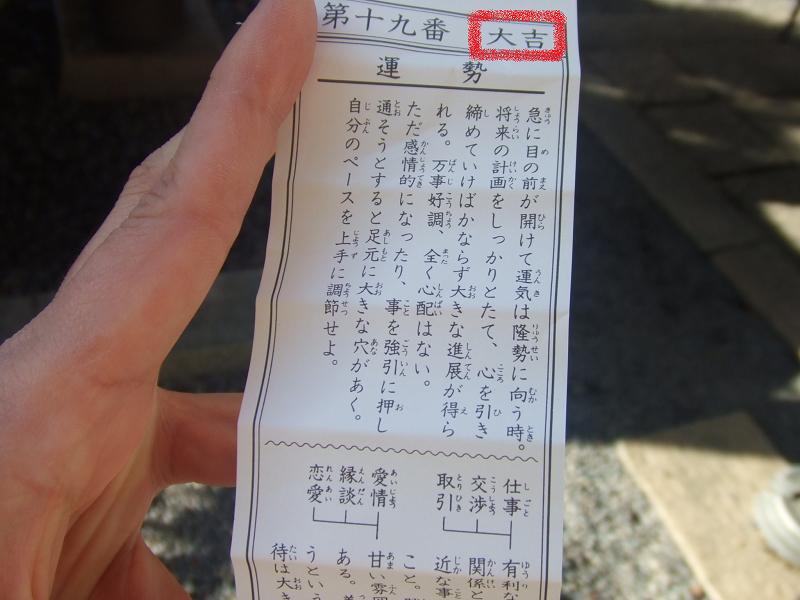 第十九番 大吉
運勢
急に目の前が開けて運気は隆勢に向う時。
将来の計画をしっかりとたて、心を引き
締めていけばかならず大きな進展が得ら
れる。万事好調、全く心配はない。
ただ感情的になったり、事を強引に押し
通そうとすると足元に大きな穴があく。
自分のペースを上手に調節せよ。
仕事
交渉
取引
有利な
関係と
近な事
こと。
愛情
縁談
恋愛
甘い雰
ある。
うという
待は大き